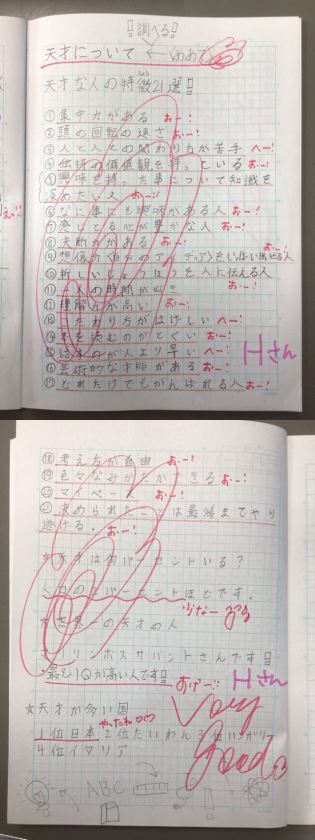 調べる!!
天才について ← めあて
天才な人の特徴21選!!
①集中力がある おー!
②頭の回転の速さ おー!
③人と人との関わり方が苦手 へー!
④独特の価値観を持っている おー!
⑤興味を持った事について知識を
深めたい人 おー!!
⑥なに事にも興味がある人 おー!
⑦感じとる心が豊かな人 おー!
⑧決断力がある おー! おー!
⑨想像力(自分のアイディア)をいっぱい出せる人
⑩新しいじょうほうを人に伝える人
⑪一人の時間が おー!
⑫理解力が高い おー!
⑬かたわり方がはげしい へー!
⑭本を読むのがとくい おー!
⑮ 人より早い へー! Hさん
⑯芸術的な才能がある おー!
⑰どれだけでもがんばれる人 おー!
⑱考え方が自由 おー!
⑲色々なみかたができる おー!
⑳マイペース おー!
㉑決められたことは最後までやり
遂げる。 おー!
☆天才は何パーセントいる?
人口の2パーセントほどです。
少なー
☆世界一の天才の人
マリリンボスサバントさんです!!
最もIQが高い人です!! おけー!! Hさん
☆天才が多い国 やったね Very
1位日本 2位たいわん 3位 Good
4位イタリア
ABC